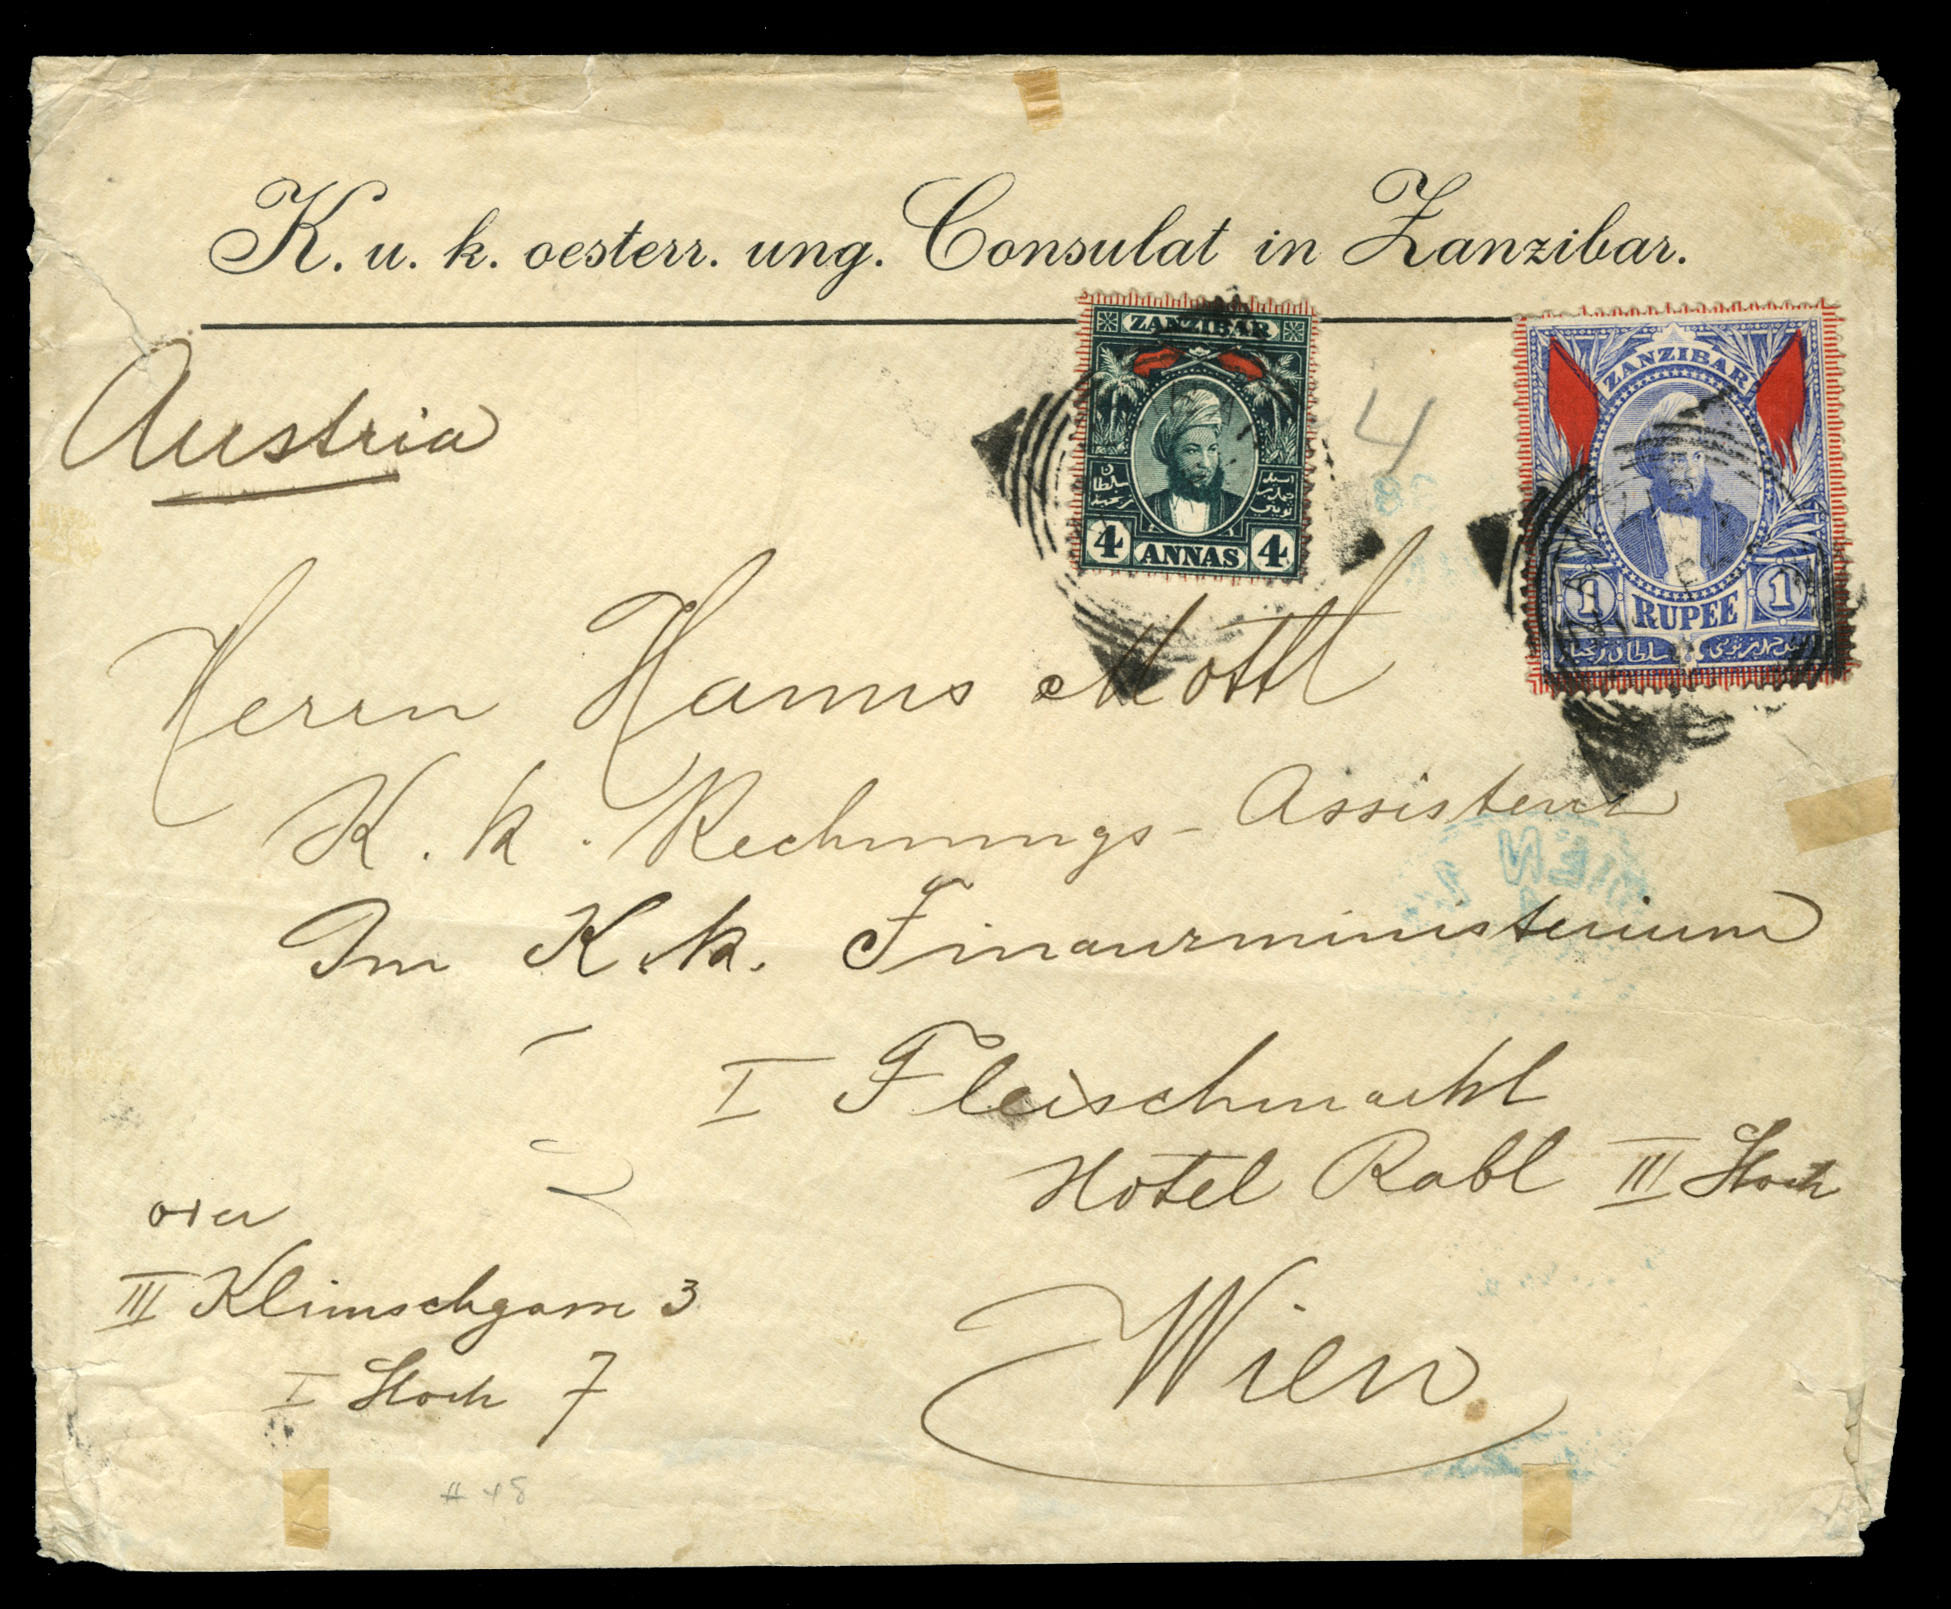 K. u. k. oesterr. ung. Consulat in Zanzibar.
Austria
ZANZIBAR
4 ANNAS 4
4
ZANZIBAR
1 RUPEE 1
Herrn Hanns Mottl
K. k. Rechnungs-Assistent
Im K. k. Finanzministerium
I Fleischmarkt
Hotel Rabl III Stock
oder
III Klimschgasse 3
I Stock 7
Wien.
WIEN
# 48